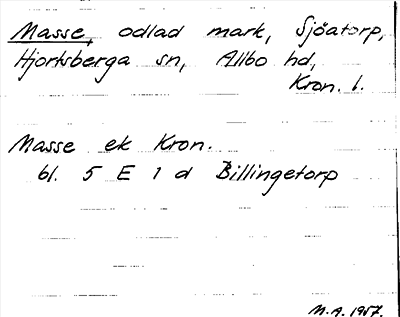 Masse, odlad mark, Sjöatorp,
Hjortsberga sn, Allbo hd,
Kron. l.
Masse ek Kron.
bl. 5 E 1 d Billingetorp
M.A. 1957.